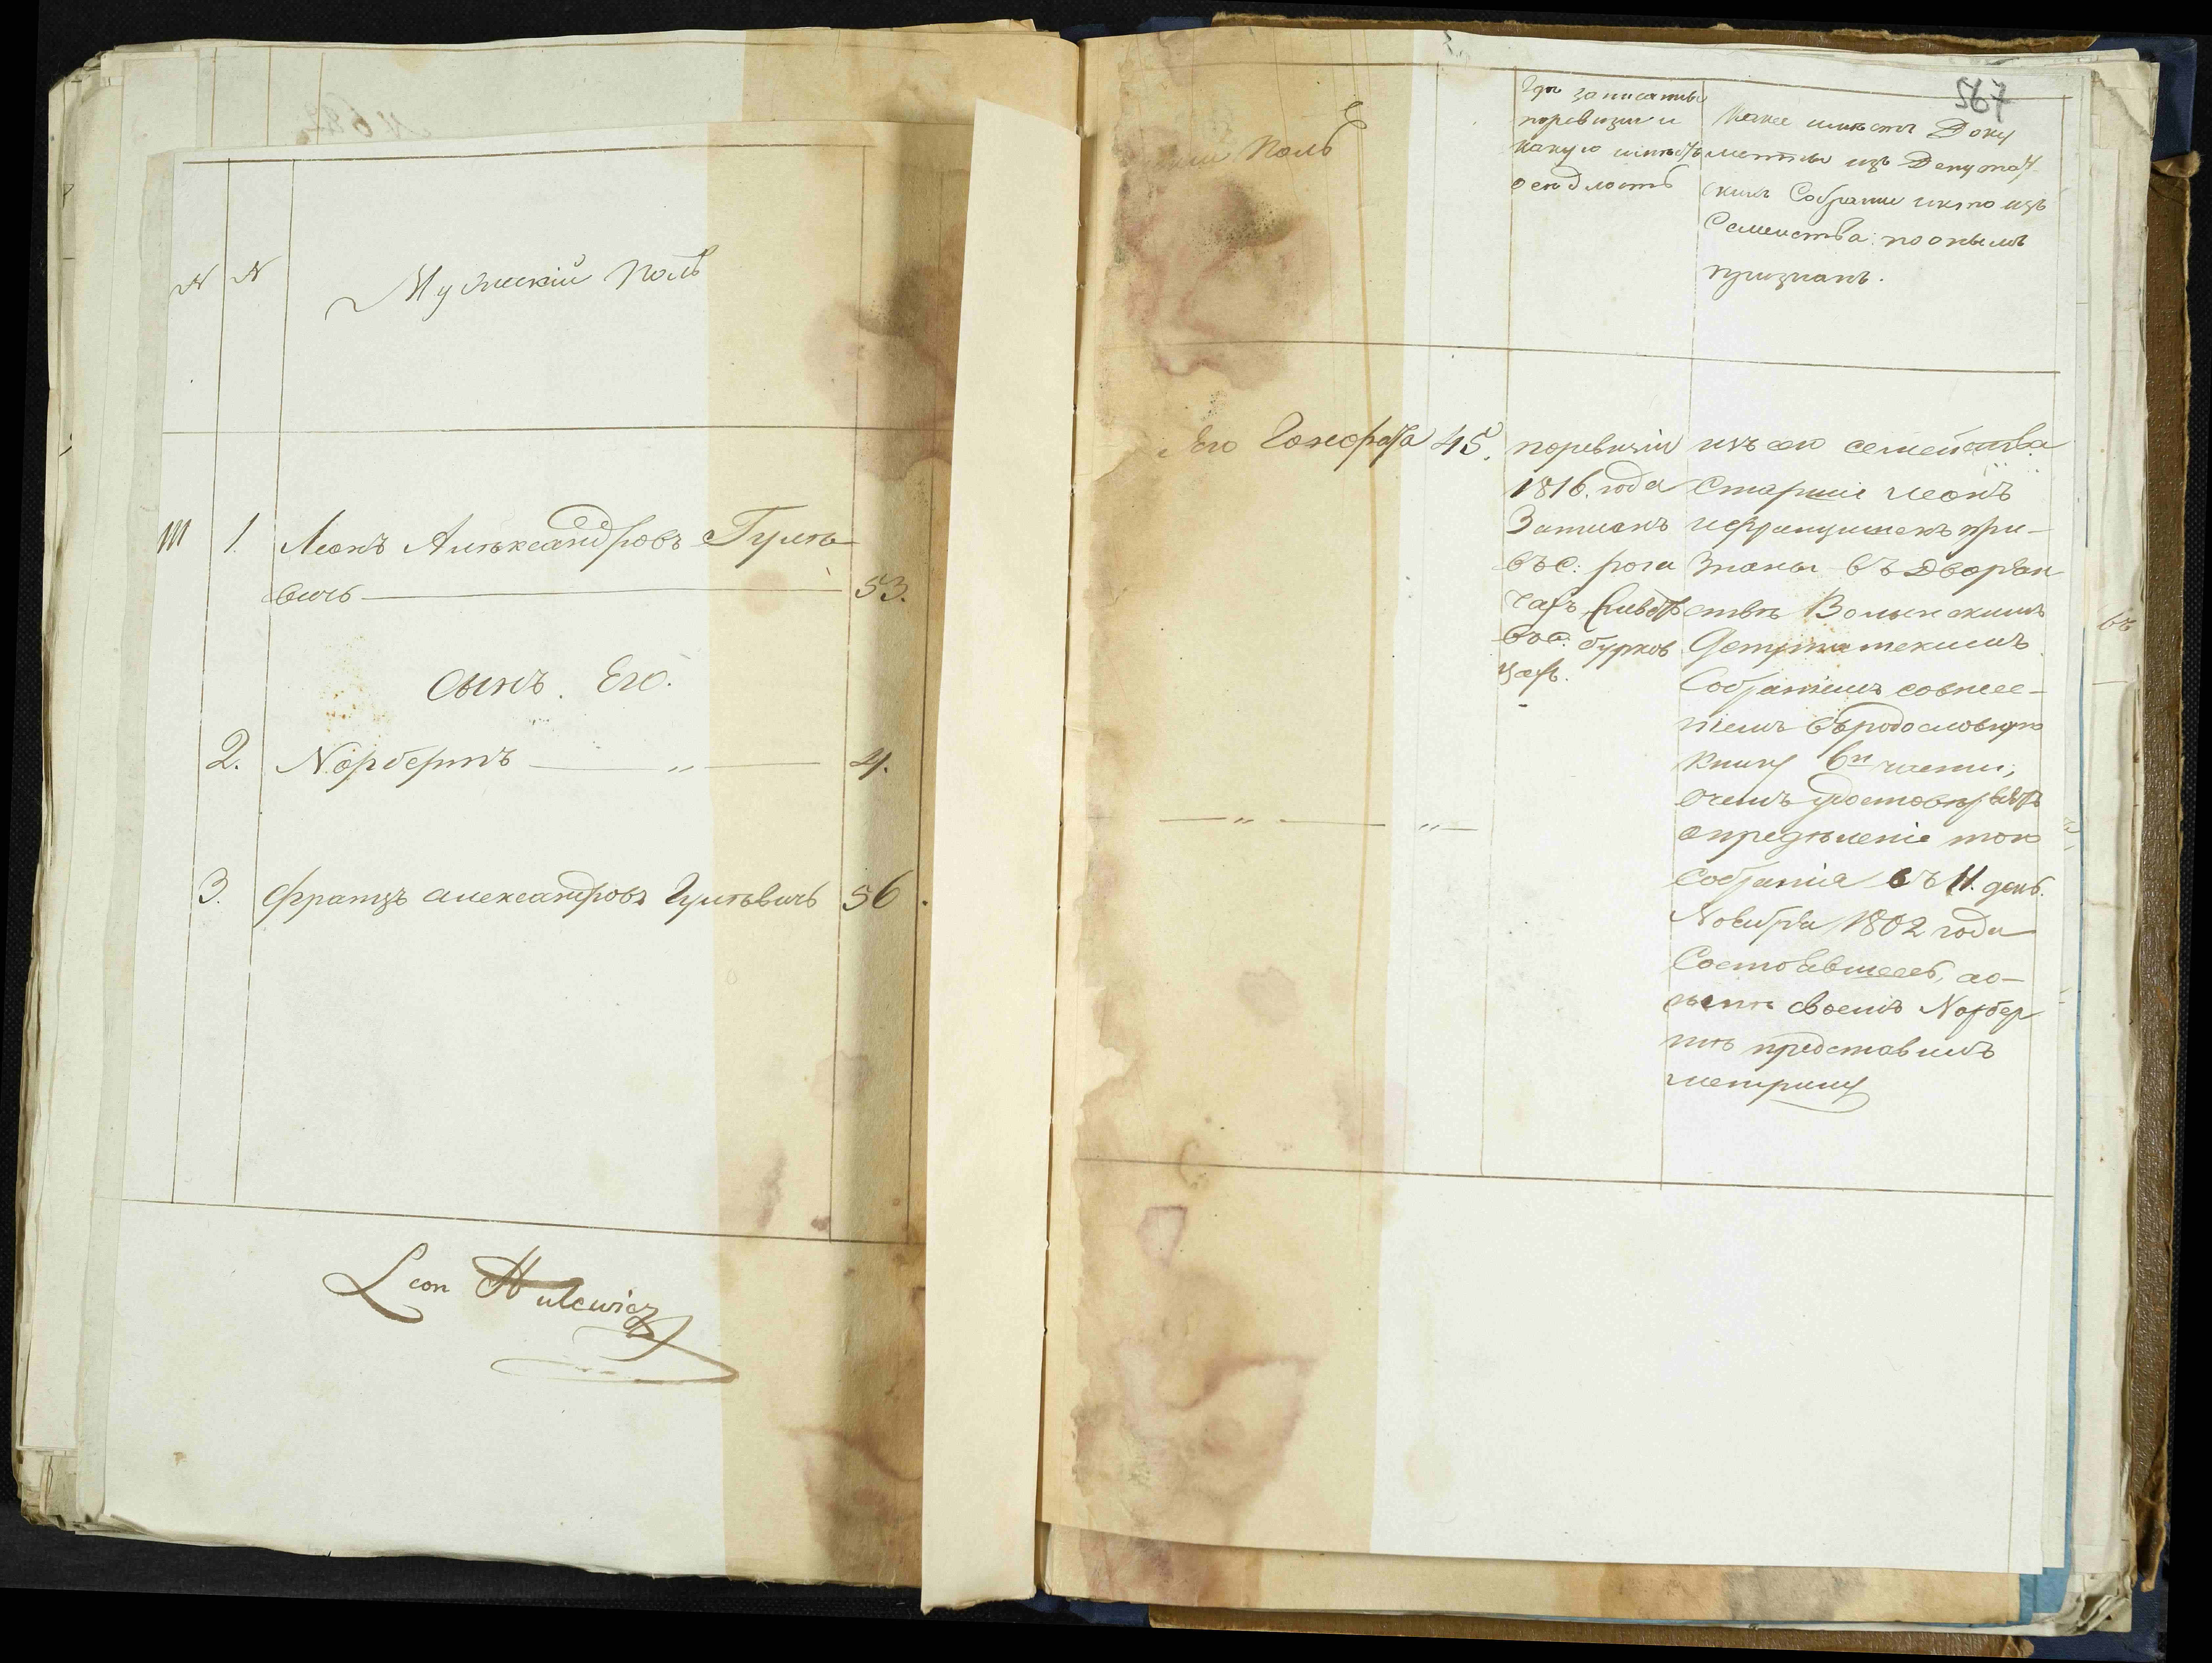 N N Мужскій Полъ
III 1. Леонъ Алѣксандровъ Гулѣ
вичъ 53.
Сынъ Его.
2. Норбертъ — „ — 4.
3. Францъ Александровъ Гулѣвичъ 56.
Leon Hulewicz
567
Полъ
Гдѣ записаны
поревизіи и
какую имѣетъ
оседлость
Какие имѣетъ Доку
менты изъ Депутат
скихъ Собрании икто изъ
Семейства поонымъ
признанъ.
Его Іозефата 45.
поревизіи
1816. года
Записанъ
въ С: рога
чахъ
вос. бурков
цахъ.
изъ сего семейства
Старшие Леонъ
иФранцишекъ при-
знаны въ Дворян
ствѣ Волынскимъ
Депутатскимъ
Собраніемъ совнесе-
ніемъ въродословную
книгу 6й части,
очемъ удостовѣряетъ
опредѣленіе того
Собранія въ 11. день
Ноября 1802 года
Состоявшееся, ао-
сынѣ своемъ Норбер
тѣ представилъ
метрику
— „ — „ —
въ